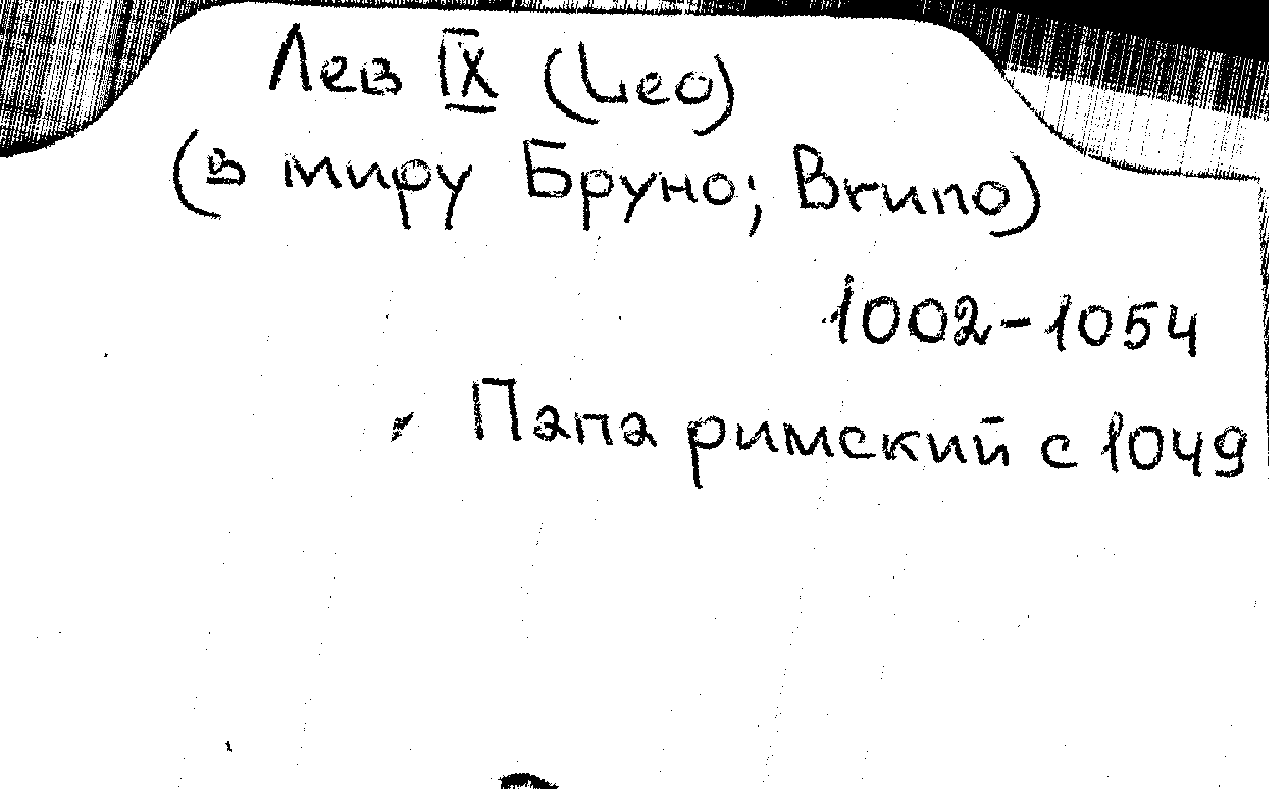 Лев IX (Leo)
(в миру Бруно; Bruno)
1002-1054
Папа римский с 1049